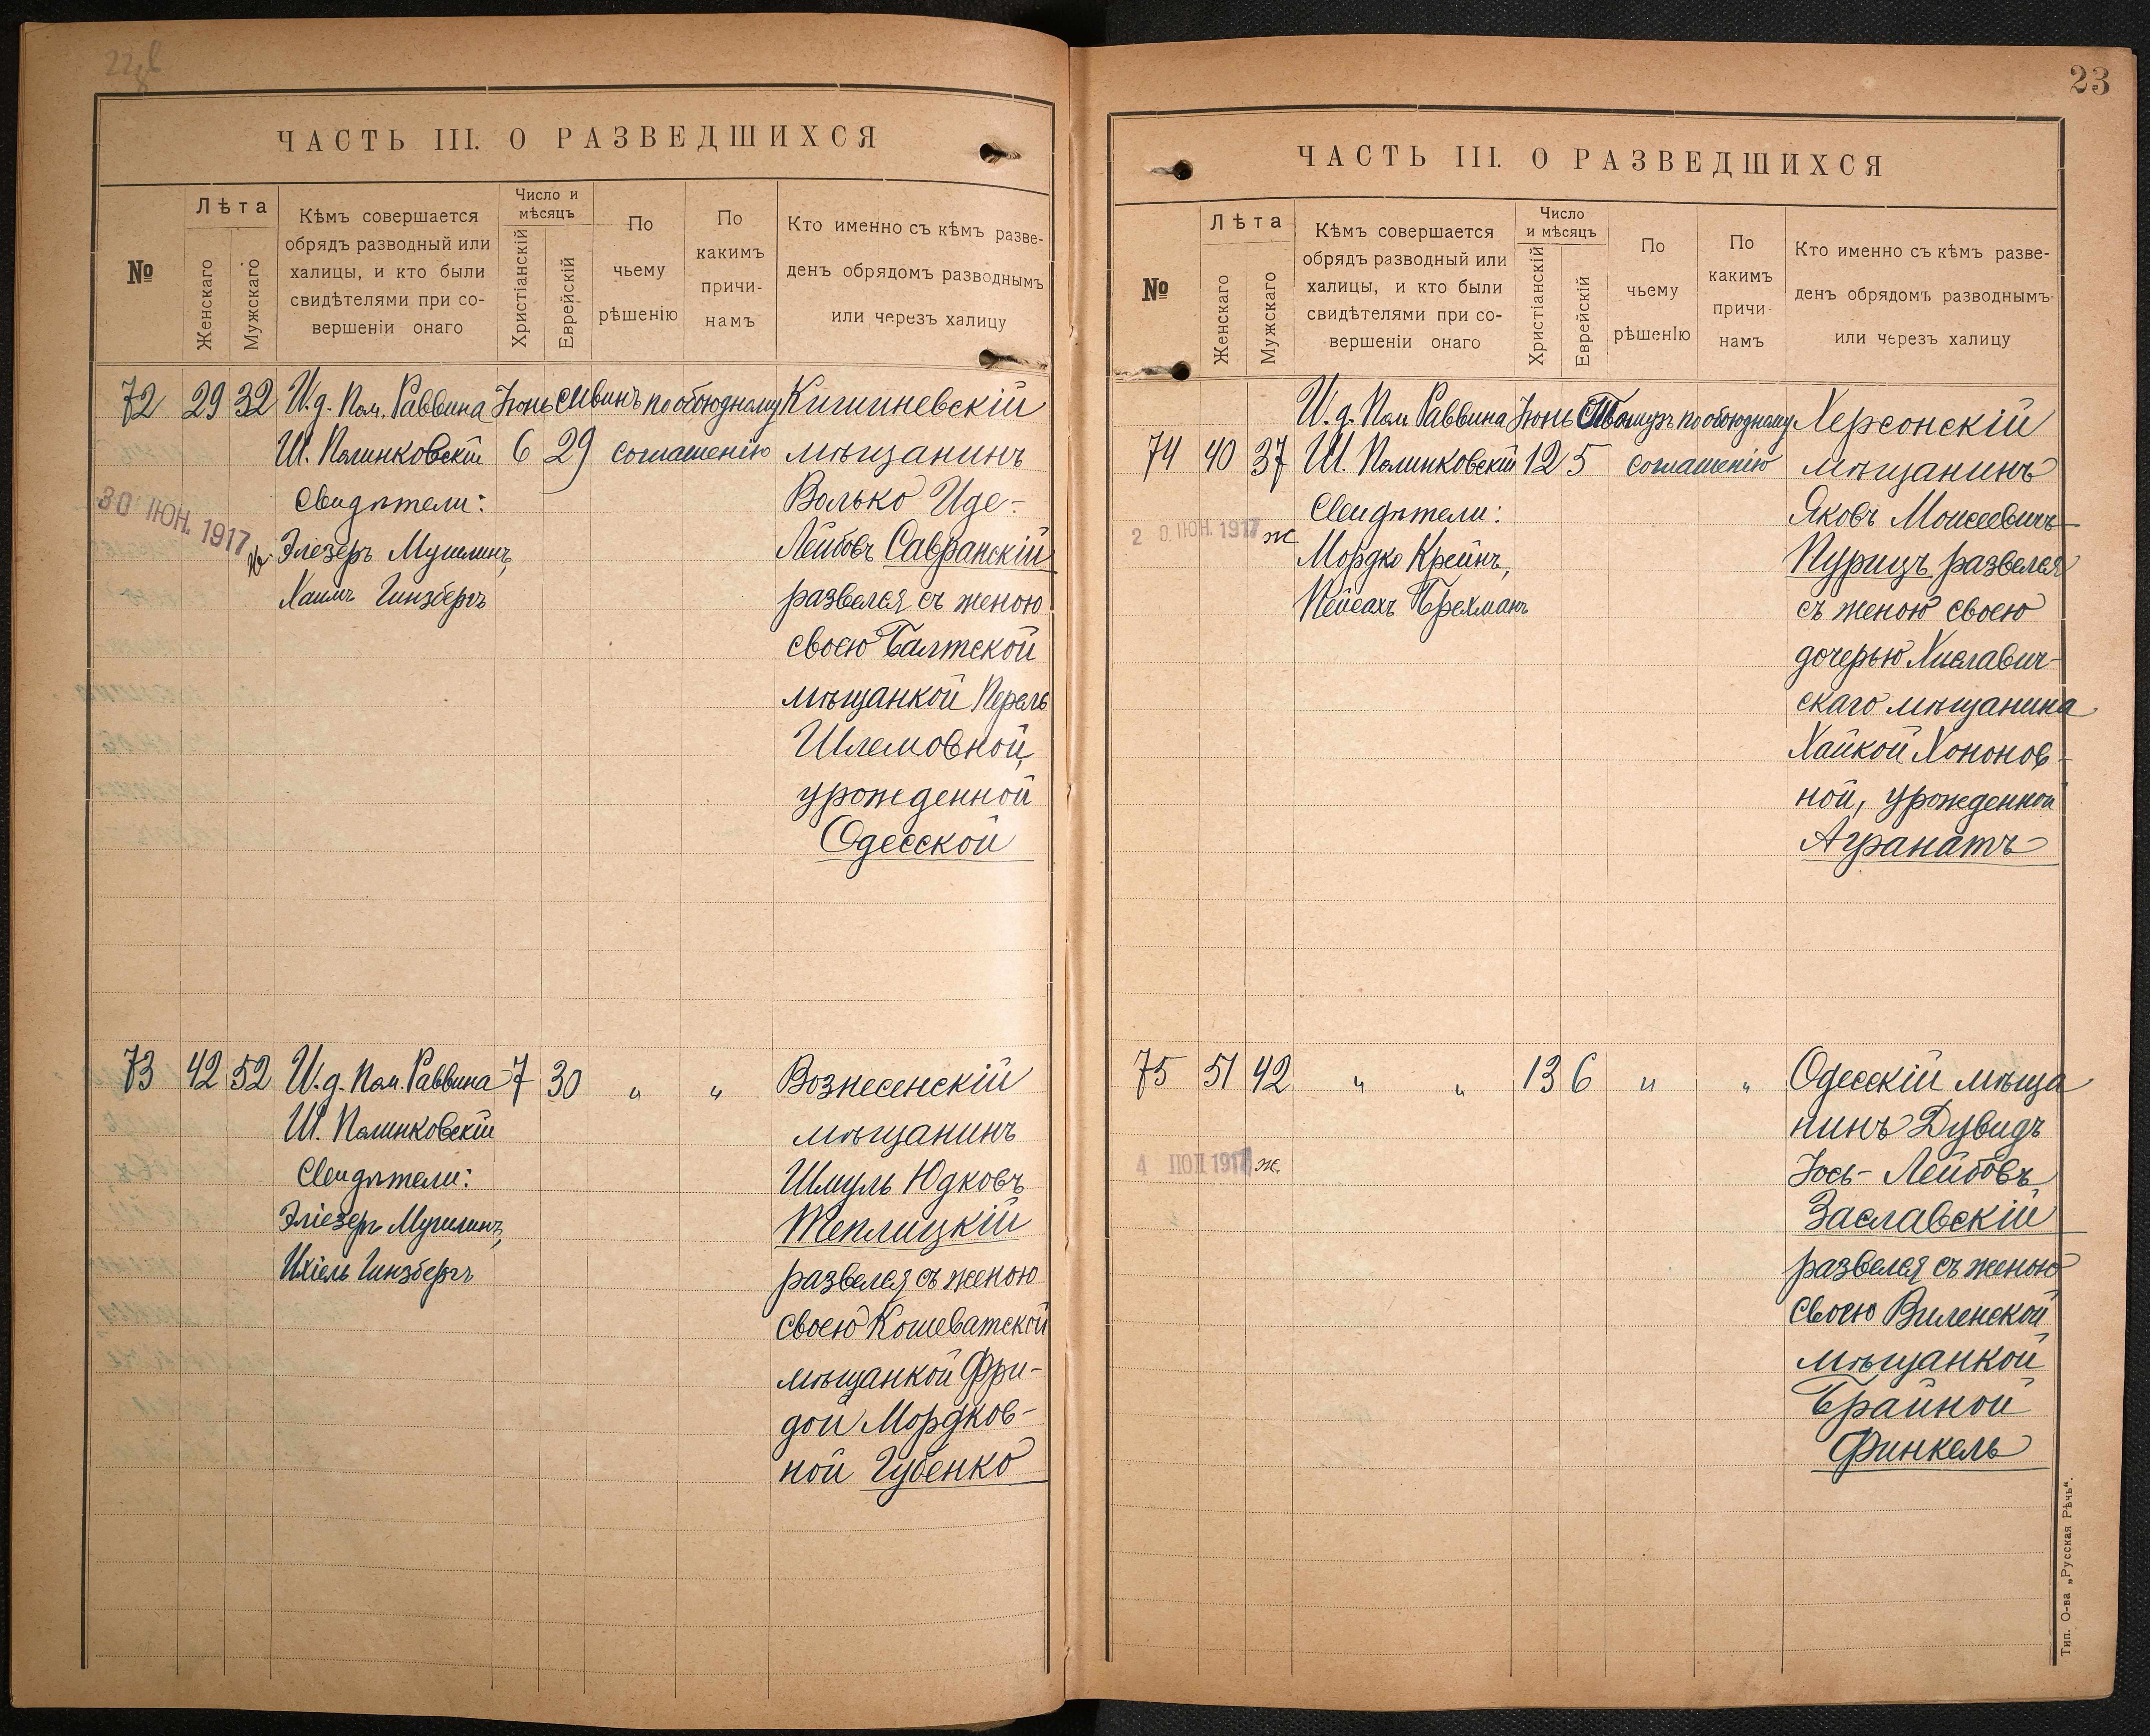 ЧАСТЬ III. О РАЗВЕДШИХСЯ
№
Лѣта
Женскаго
Мужскаго
Кѣмъ совершается
обрядъ разводный или
халицы, и кто были
свидѣтелями при со-
вершеніи онаго
Число и
мѣсяцъ
Христіанскій
Еврейскій
По
чьему
рѣшенію
По
какимъ
причи-
намъ
Кто именно съ кѣмъ разве-
денъ обрядомъ разводнымъ
или через халицу
72 29 32 И.д. Пом. Раввина Іюнь Сивинъ по обоюдному Кишиневскій
Ш. Полинковскій 6 29 соглашенію мѣщанинъ
Свидѣтели: Волько Иде-
30 ІЮН. 1917 Эліезеръ Мушлинъ, Лейбовъ Савранскій
Хаимъ Гинзбергъ развелся съ женою
своею Балтской
мѣщанкой Перель
Шлемовной,
урожденной
Одесской
73 42 52 И.д. Пом. Раввина 7 30 " " Вознесенскій
Ш. Полинковскій мѣщанинъ
Свидѣтели: Шмуль Юдковъ
Эліезеръ Мушлинъ, Теплицкій
Ихіель Гинзбергъ развелся съ женою
своею Кошеватской
мѣщанкой Фри-
дой Мордков-
ной Губенко
23
ЧАСТЬ III. О РАЗВЕДШИХСЯ
№
Лѣта
Женскаго
Мужскаго
Кѣмъ совершается
обрядъ разводный или
халицы, и кто были
свидѣтелями при со-
вершеніи онаго
Число
и мѣсяцъ
Христіанскій
Еврейскій
По
чьему
рѣшенію
По
какимъ
причи-
намъ
Кто именно съ кѣмъ разве-
денъ обрядомъ разводнымъ
или черезъ халицу
И.д. Пом. Раввина Іюнь Тамузъ по обоюдному Херсонскій
74 40 37 Ш. Полинковскій 12 5 соглашенію мѣщанинъ
Свидѣтели: Яковъ Моисеевичъ
20. ІЮН. 1917 ж Мордко Крейнъ, Пурицъ развелся
Пейсахъ Брехманъ съ женою своею
дочерью Хиславич-
скаго мѣщанина
Хайкой Хононов-
ной, урожденной
Агранатъ
75 51 42 " " 13 6 " " Одесскій мѣща
нинъ Дувидъ
4 1917 ж. Іось-Лейбовъ
Заславскій
развелся съ женою
своею Виленской
мѣщанкой
Брайной
Финкель
Тип. О-ва „Русская Рѣчь“.